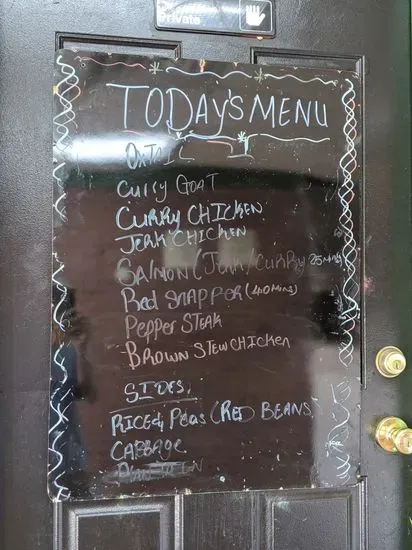 Private
TODAY'S MENU
OXTAIL
CURRY GOAT
CURRY CHICKEN
JERK CHICKEN
SALMON (JERK/CURRY 25MINS)
Red SNAPPER (40MINS)
Pepper STEAK
BROWN STEW CHICKEN
SIDES,
RICE & PEAS (RED BEANS
CABBAGE
PLANTAIN